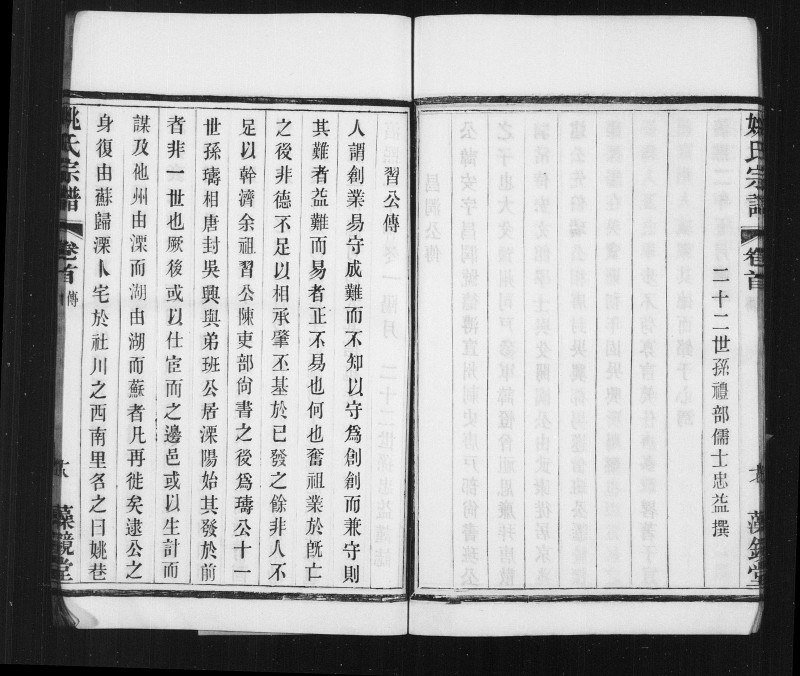 二十二世孫禮部儒士忠益撰
習公傳
人謂創業易守成難而不知以守爲創創而兼守則
其難者益難而易者正不易也何也奮祖業於旣亡
之後非德不足以相承肇丕基於已發之餘非人不
足以幹濟余祖習公陳吏部尙書之後爲璹公十一
世孫璹相唐封吳興與弟班公居溧陽始其發於前
者非一世也厥後或以仕宦而之邊邑或以生計而
謀及他州由溧而湖由湖而蘇者凡再徙矣逮公之
身復由蘇歸溧卜宅於社川之西南里名之曰姚巷
姚氏宗譜
卷首
傳
藻鏡堂